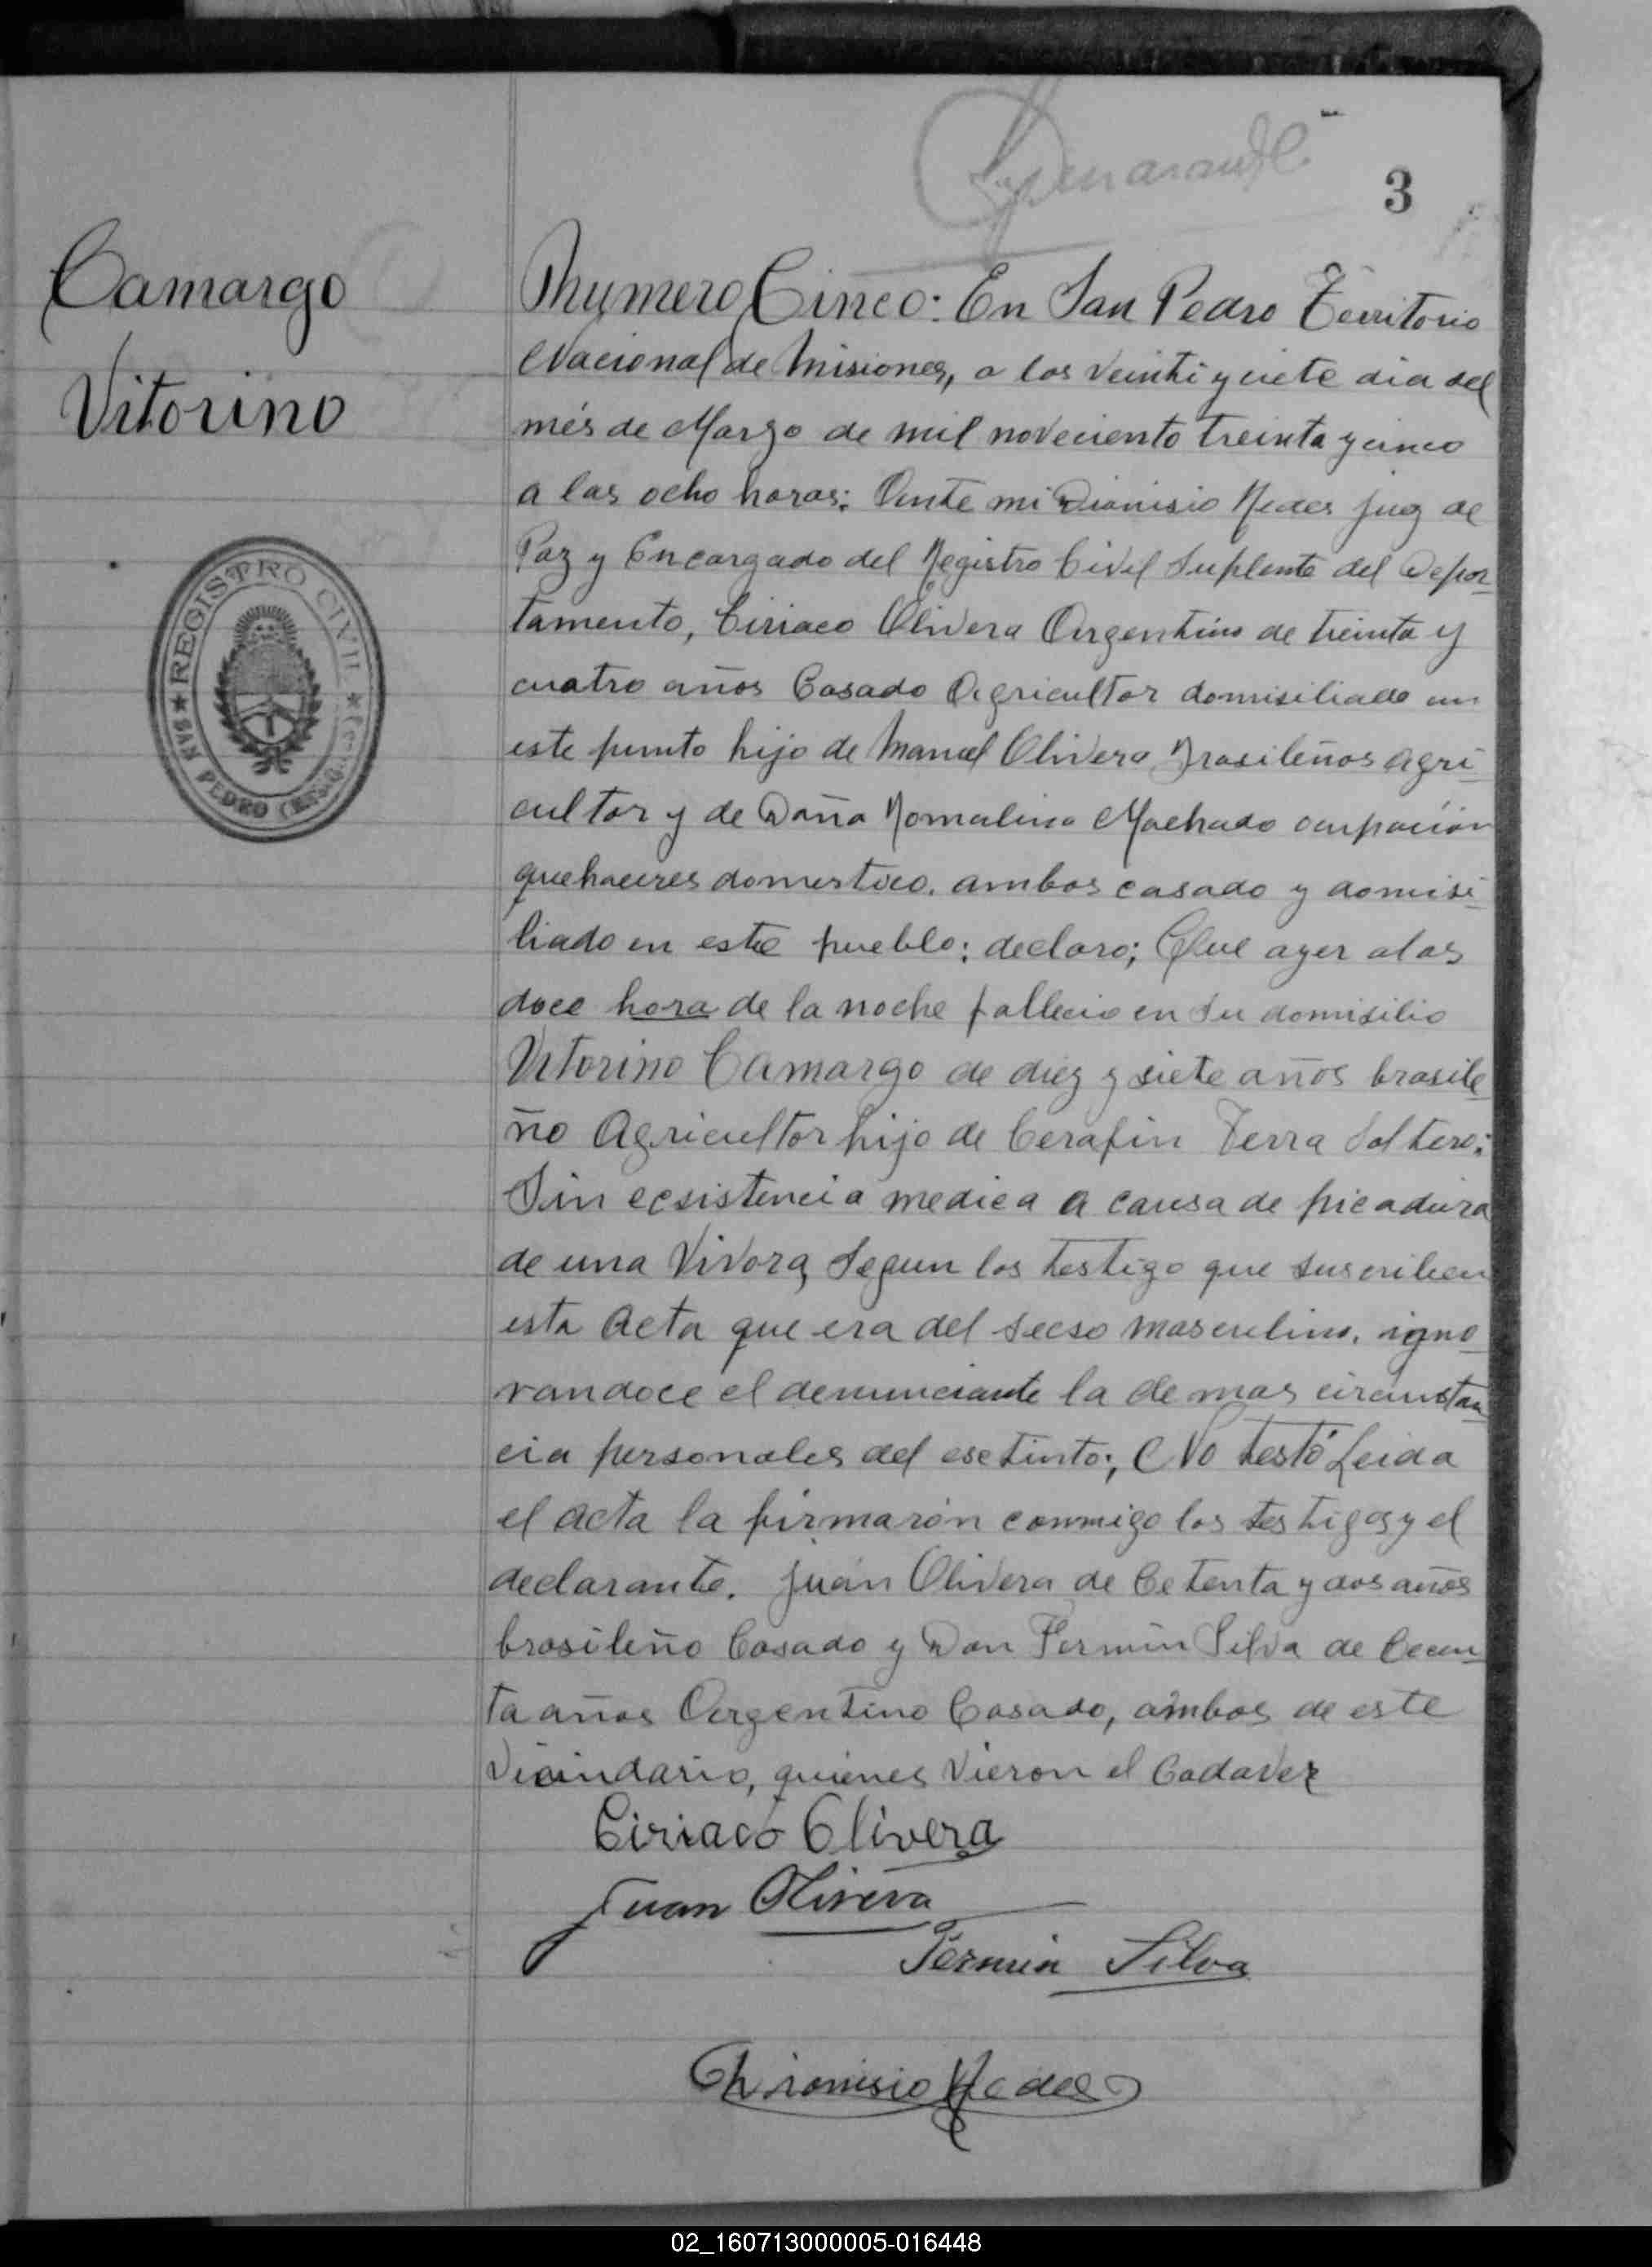 3
Camargo
Vitorino
Numero Cinco: En San Pedro Territorio
Nacional de Misiones, a los veinti y ciete dia del
més de Marzo de mil noveciento treinta y cinco
a las ocho horas: Ante mi Dionisio juez de
Paz y Encargado del Registro Civil Suplente del Depar-
tamento, Ciriaco Olivera Argentino de treinta y
cuatro años Casado Agricultor domisiliado en
este punto hijo de Manuel Olivera Brasileños agri-
cultor y de Doña Romalina Machado ocupación
quehaceres domestico. ambos casado y domisi-
liado en este pueblo; declaro; Que ayer a las
doce hora de la noche fallecio en su domisilio
Vitorino Camargo de diez y siete años brasile-
ño Agricultor hijo de Cerafin Terra Soltero;
Sin ecsistencia medica a causa de picadura
de una Vivora, Segun los testigo que suscriben
esta Acta que era del secso masculino, igno-
randoce el denunciante la demas circunstan-
cia personales del esetinto; No testó Leida
el acta la firmarón conmigo los testigos y el
declarante. Juan Olivera de Cetenta y dos años
brasileño Casado y Don Fermin Silva de Cecen-
ta años Argentino Casado, ambos de este
Vicindario, quienes Vieron el Cadaver
Ciriaco Olivera
Juan Olivera
Fermin Silva
Dionisio
REGISTRO CIVIL
SAN PEDRO
02_160713000005-016448